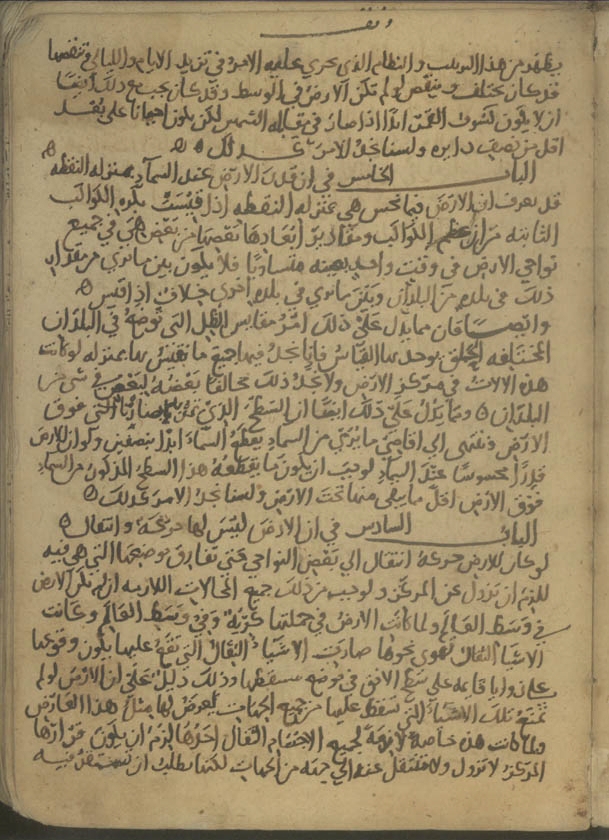 يظهر من هذا الترتيب والنظام الذي يجري عليه الامر في تزيد الايام والليالي وتنقصها
قد كان يختلف وينقص لو لم تكن الارض في الوسط وقد كان يجب مع ذلك ايضا
ان لا يكون كسوف القمر ابدا اذا صار في مقابلة الشمس لكن يكون احيانا على بعد
اقل من نصف دايره ولسنا نجد الامر كذلك
الباب الخامس في ان قدر الارض عند السمآء بمنزله النقطه
قد يعرف ان الارض فيما يحس هي بمنزله النقطه اذا قيست بكره الكواكب
الثابته من ان عظم الكواكب ومقادير ابعادها بعضها من بعض هي في جميع
نواحي الارض في وقت واحد بعينه متساويا فلا يكون بين ما نري من مقدار
ذلك في بلده من البلدان وبين ما نري في بلده اخري خلاف اذا قيس
وايضا فان مما يدل علي ذلك امر مقاييس الظل التي توضع في البلدان
المختلفه والحلق يوجد بها القياس فإنا نجد فيها جميع ما نقيس بها بمنزله لو كانت
هذه الالات في مركز الارض ولا نجد ذلك مخالفا بعضه لبعض في شي من
البلدان ومما يدل علي ذلك ايضا ان السطح الذي بابصارنا التي فوق
الارض وننتهى الي اقاصي ما يري من السماء يقطع السماء ابدا بنصفين ولو ان للارض
قدرا محسوسا عند السماء لوجب ان يكون ما يقطعه هذا السطح المذكور من السماء
فوق الارض اقل مما يبقى منها تحت الارض ولسنا نجد الامر كذلك
الباب السادس في ان الارض ليس لها حركة وانتقال
لو كان للارض حركة انتقال الي بعض النواحي حتى تفارق موضعها التي هي فيه
للزم ان تزول عن المركز ولوجب من ذلك جميع المحالات اللازمه ان لم تكن الارض
في وسط العالم ولما كانت الارض في جملتها كرّيّة وفي وسط العالم وكانت
الاشياء الثقال تهوي نحوها صارت الاشياء الثقال التي تقع عليها يكون وقوعها
على زوايا قايمه علي سطح الافق في موضع مسقطها وذلك دليل على ان الارض لو لم
تمنع تلك الاشياء التي تسقط عليها من جميع الجهات لعرض لها مثل هذا العارض
ولما كانت هذه خاصة لازمة لجميع الاجسام الثقال اخرها لزم ان يكون قرارها
المركز لا تزول ولا تنتقل عنه الي جهة من الجهات لكنها تطلب ان تستقر فيه